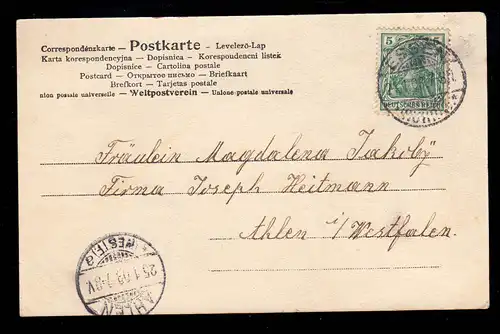 Correspondenzkarte – Postkarte – Levelező-Lap
Karta korespondencyjna – Dopisnica – Korespoudencni listek
Dopisnice – Cartolina postale
Postcard – Открытое письмо – Briefkaart
Brefkort – Tarjetas postale
nion postale universelle – Weltpostverein – Unione postale universale
5 5
DEUTSCHES REICH
Fräulein Magdalena Jakoby
Firma Joseph Heitmann
Ahlen i/Westfalen.
(WESTF)
25.1.03.7-8V.
AHLEN